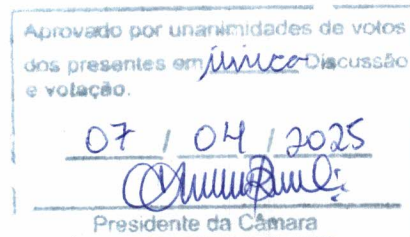 Aprovado por unanimidades de votos
dos presentes em única Discussão
e votação.
07 / 04 / 2025
Presidente da Câmara